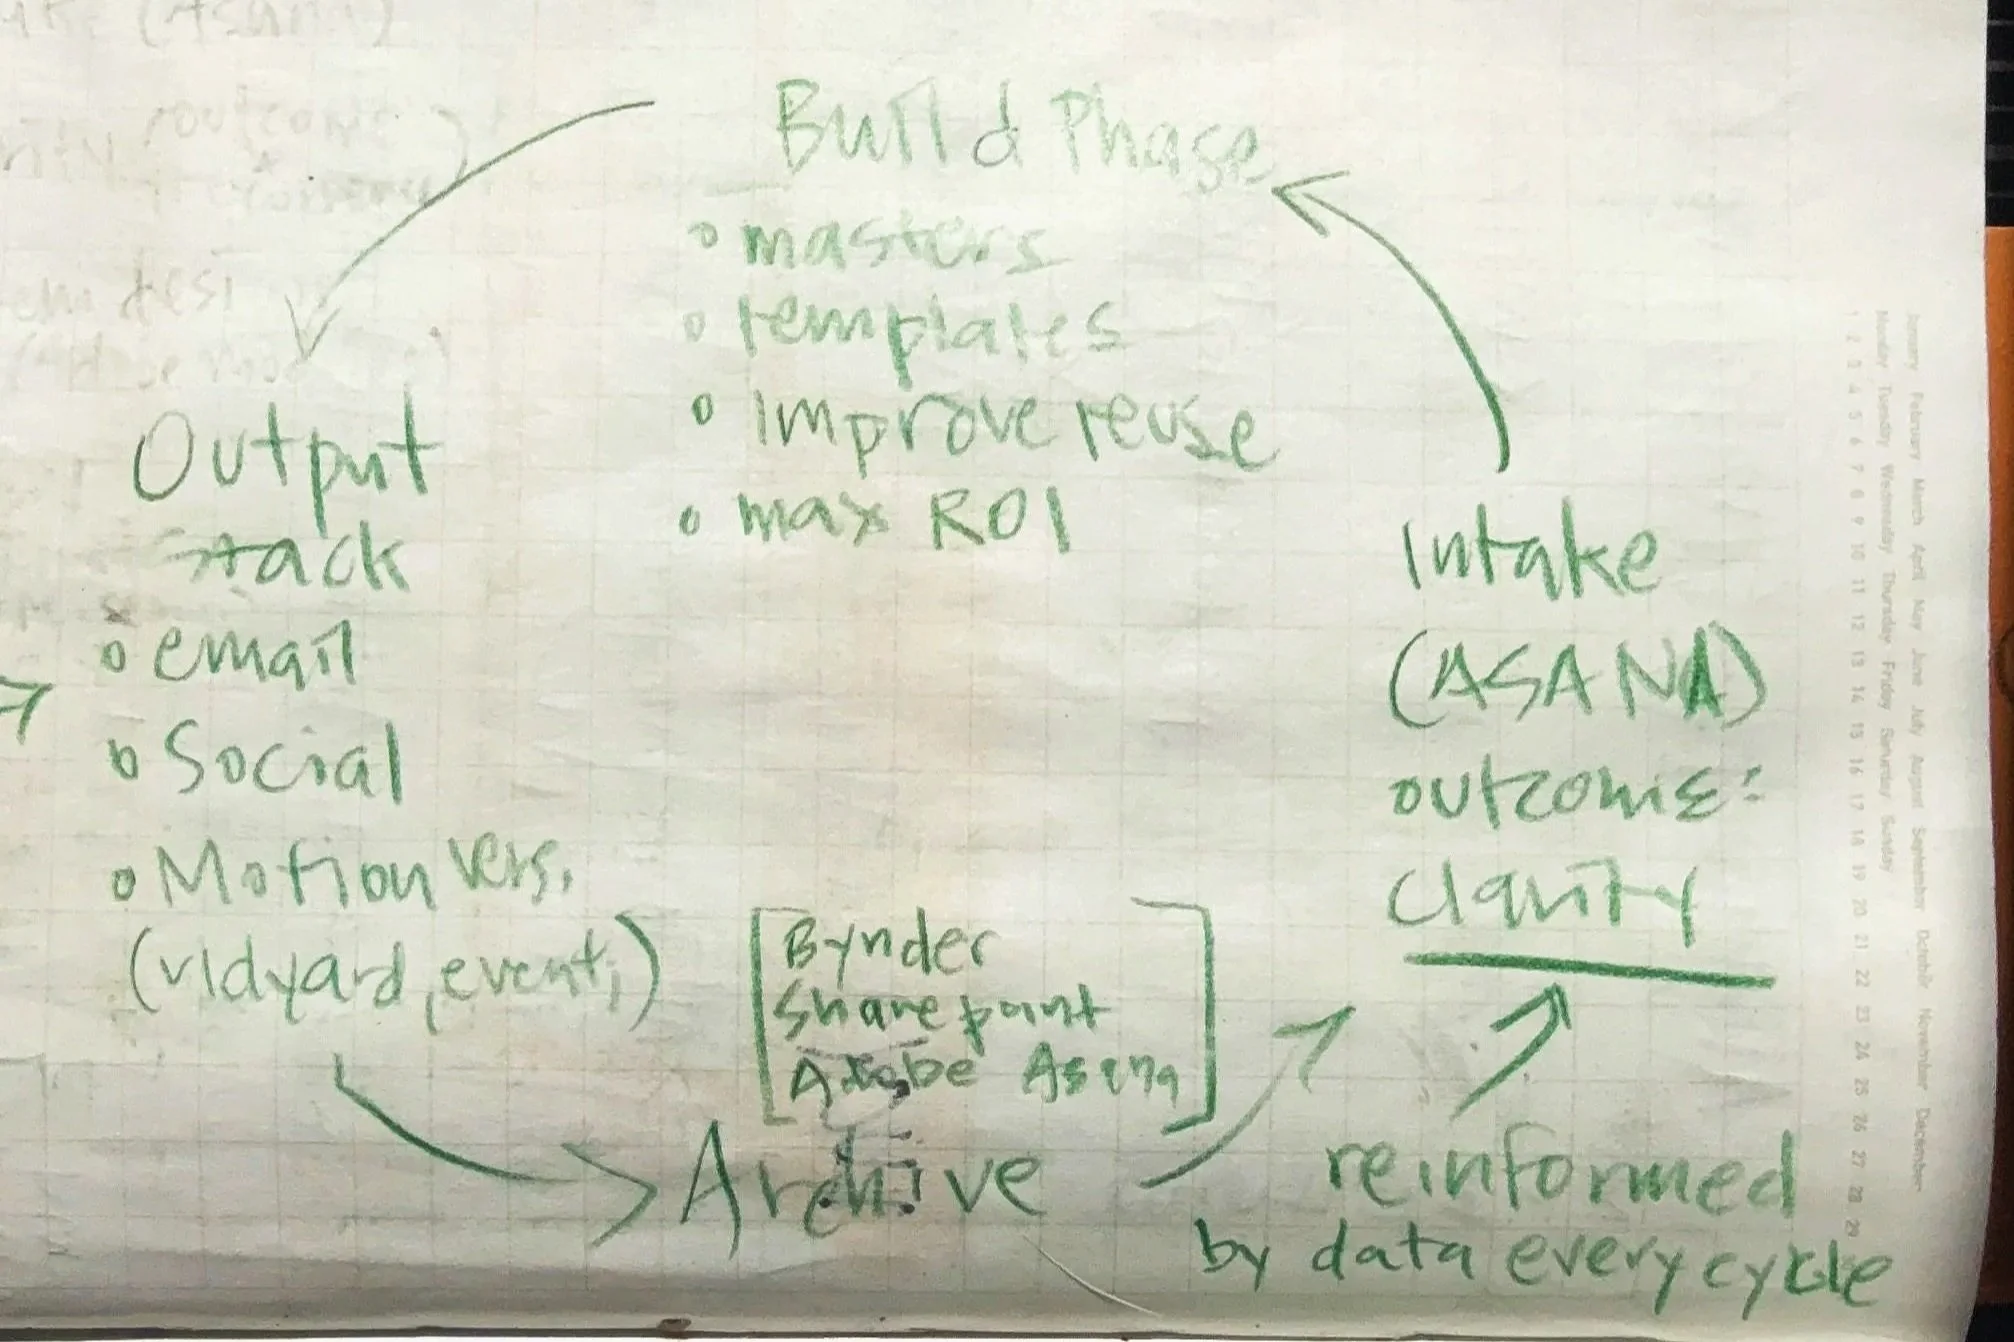 Build Phase
masters
templates
Improve reuse
max ROI
Output
Stack
email
Social
Motion vers.
(vidyard, event,)
Bynder
Sharepoint
Adobe Asana
Archive
Intake
(ASANA)
outcome:
clarity
reinformed
by data every cycle
January February March April May June July August September October November December
Monday Tuesday Wednesday Thursday Friday Saturday Sunday
1 2 3 4 5 6 7 8 9 10 11 12 13 14 15 16 17 18 19 20 21 22 23 24 25 26 27 28 29
outcome